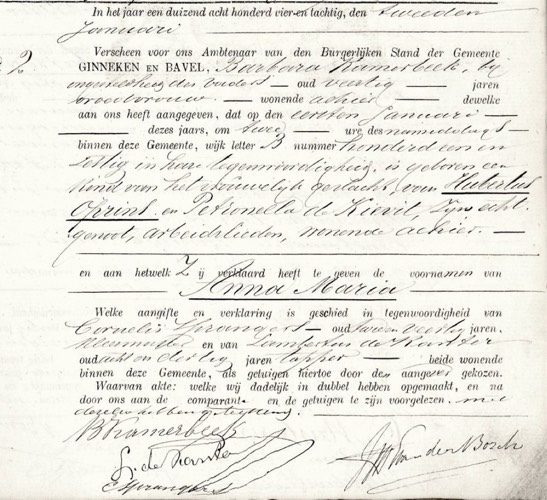 In het jaar een duizend acht honderd vier-en-tachtig, den tweeden
Januari
2
Verscheen voor ons Ambtenaar van den Burgerlijken Stand der Gemeente
GINNEKEN EN BAVEL, Barbara Kamerbeek, bij
ongesteldheid des vaders — oud veertig — jaren
vroedvrouw — wonende alhier — dewelke
aan ons heeft aangegeven, dat op den eersten Januari —
— dezes jaars, om twee — ure des namiddags —
binnen deze Gemeente, wijk letter B nummer honderd een en
zestig in hare tegenwoordigheid, is geboren een
kind van het vrouwelijk geslacht, van Hubertus
en Petronella de Kievit, zijne echt-
genoot, arbeidslieden, wonende alhier. —
en aan hetwelk Zij verklaard heeft te geven de voornamen van
Anna Maria
Welke aangifte en verklaring is geschied in tegenwoordigheid van
Cornelis Sprangers — oud twee en veertig jaren,
en van Lambertus de
oud acht en dertig jaren tapper — beide wonende
binnen deze Gemeente, als getuigen hiertoe door de aangever gekozen.
Waarvan akte: welke wij dadelijk in dubbel hebben opgemaakt, en na
door ons aan de comparant en de getuigen te zijn voorgelezen. met
dezelve hebben geteekend.
B Kamerbeek
L. de
C Sprangers
van den Bosch